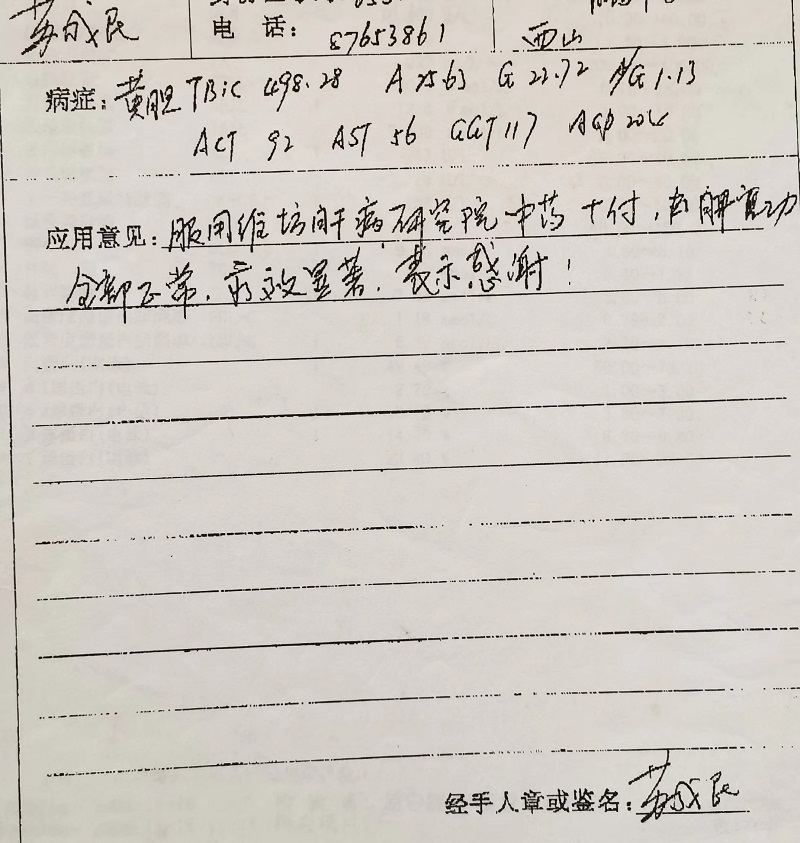 苏成民
电 话: 87653861 西山
病症: 黄胆 TBiC 498.28 A 25.63 G 22.72 A/G 1.13
ACT 92 AST 56 GGT 117 AGP 206
应用意见: 服用维坊肝病研究院中药十付,肝功
全部正常,疗效显著,表示感谢!
经手人章或鉴名: 苏成民